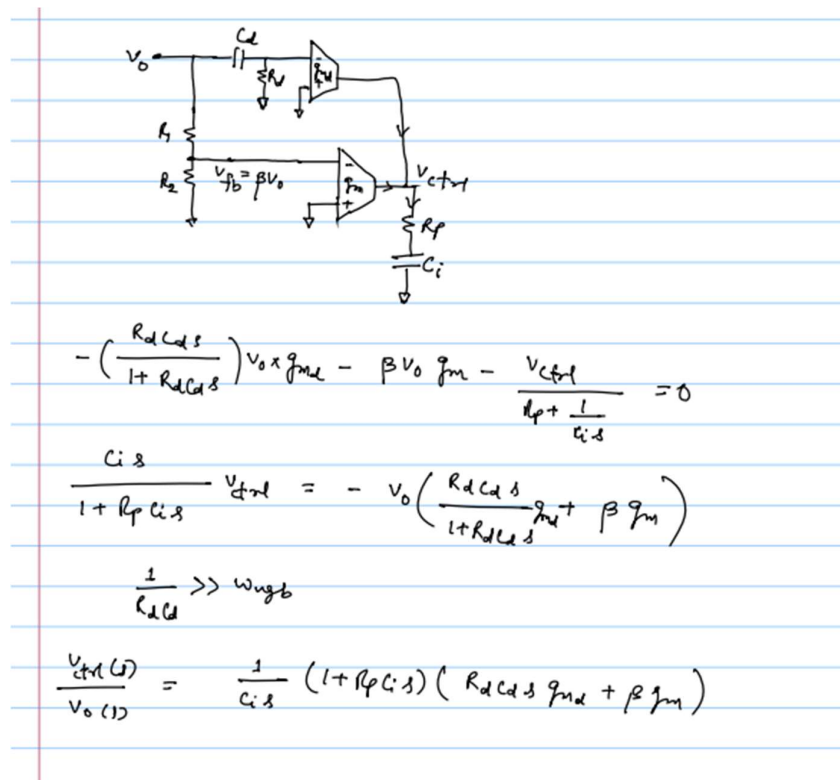 Cd
Vo
Rd
gmd
R1
R2
Vfb = βVo
-
gm
+
Vctrl
Rp
Ci
-(RdCds / 1 + RdCds) Vo × gmd - βVo gm - Vctrl / (Rp + 1/Cis) = 0
Cis / (1 + RpCis) Vctrl = - Vo (RdCds / (1+RdCds) gmd + βgm)
1 / RdCd >> ωugb
Vctrl(s) / Vo(s) = 1 / Cis (1+RpCis) (RdCds gmd + βgm)